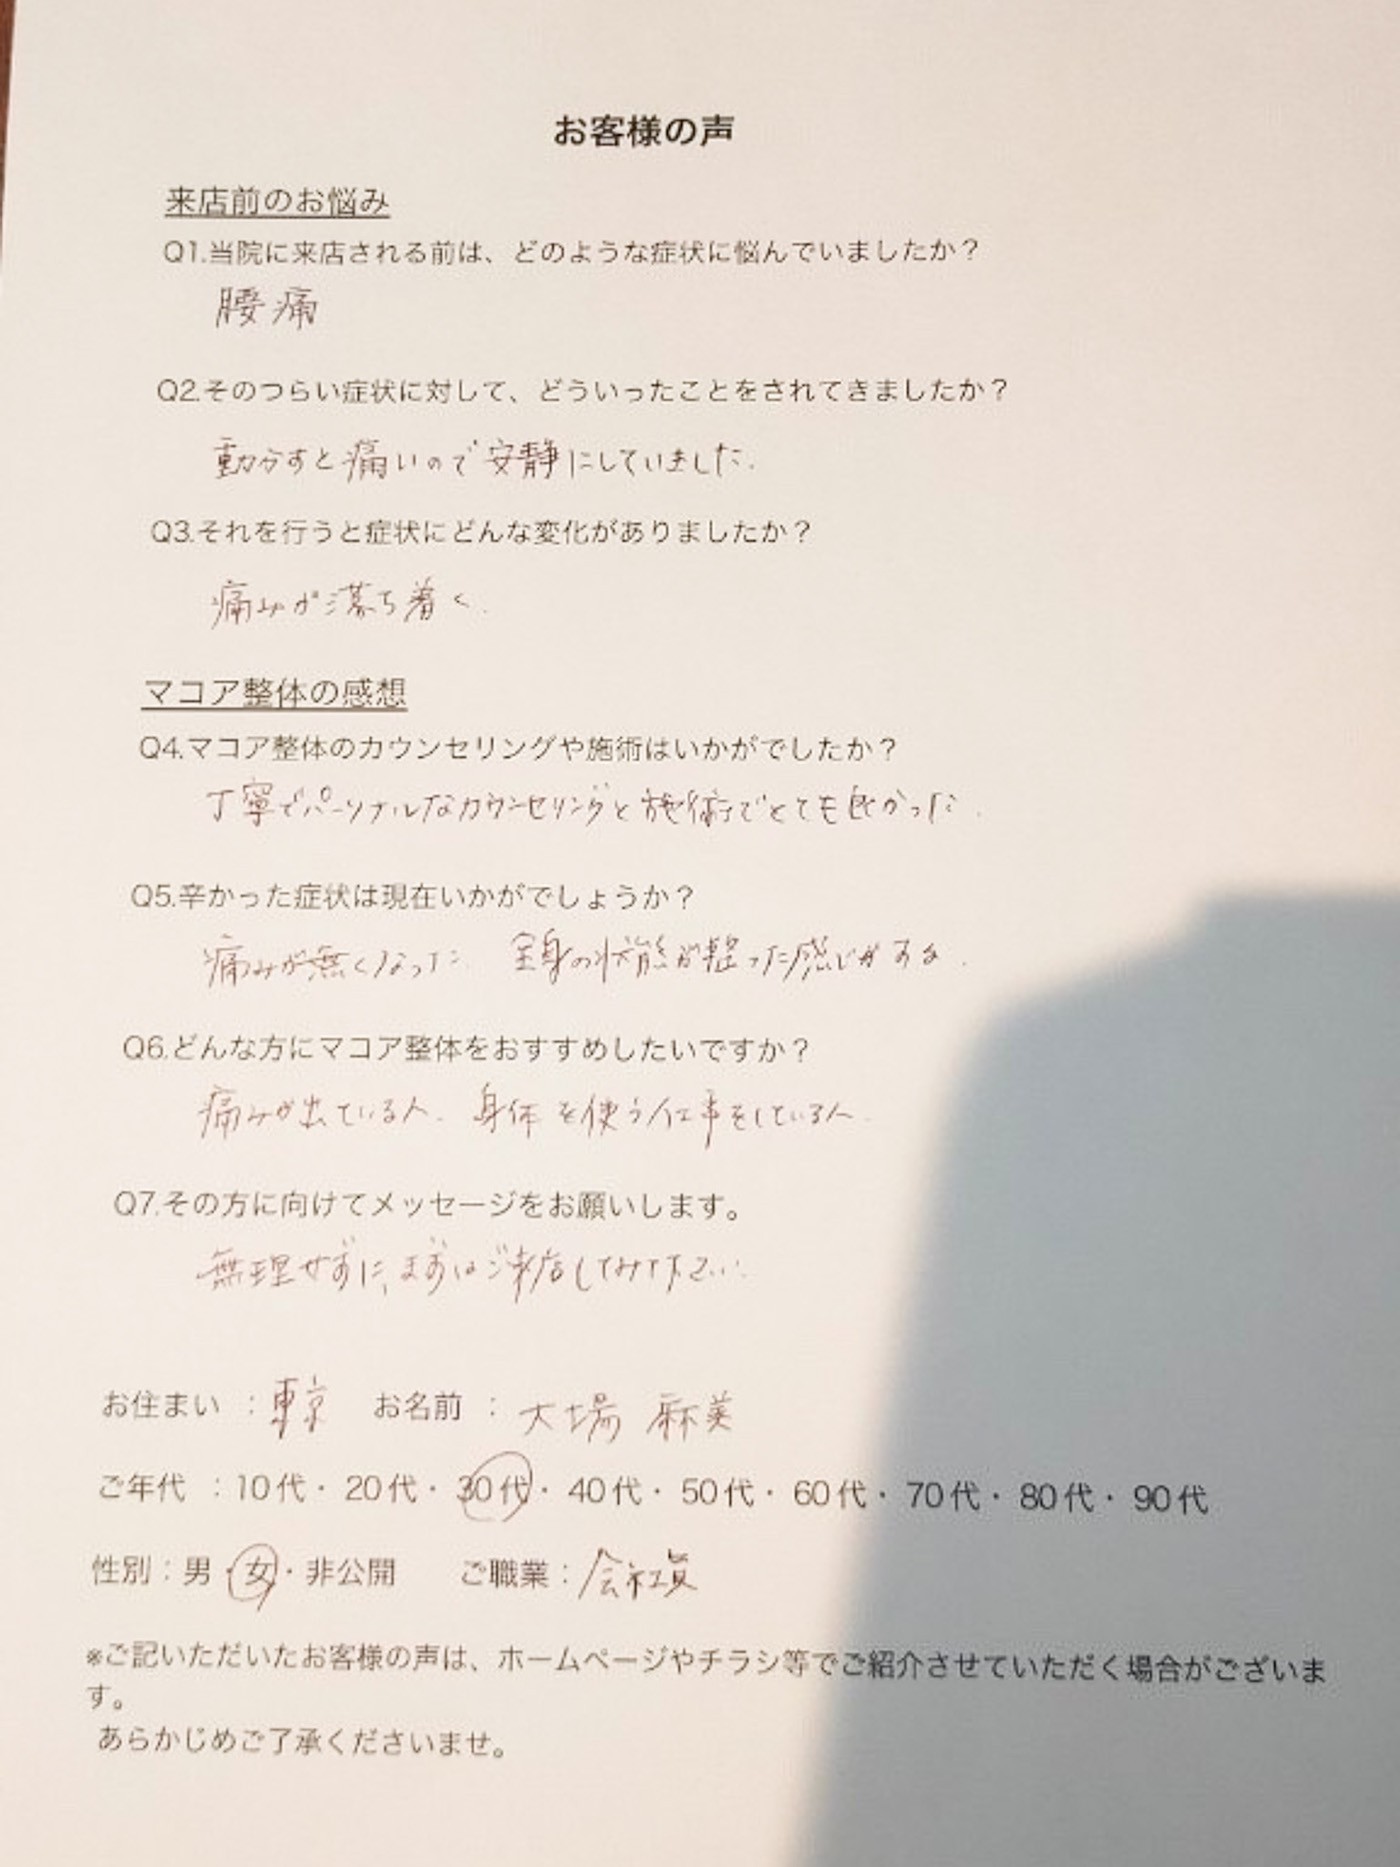 お客様の声
来店前のお悩み
Q1.当院に来店される前は、どのような症状に悩んでいましたか？
腰痛
Q2.そのつらい症状に対して、どういったことをされてきましたか？
動かすと痛いので安静にしていました.
Q3.それを行うと症状にどんな変化がありましたか？
痛みが落ち着く.
マコア整体の感想
Q4.マコア整体のカウンセリングや施術はいかがでしたか？
丁寧でパーソナルなカウンセリングと施術でとても良かった.
Q5.辛かった症状は現在いかがでしょうか？
痛みが無くなった. 全身の状態が整った感じがする.
Q6.どんな方にマコア整体をおすすめしたいですか？
痛みが出ている人. 身体を使う仕事をしている人.
Q7.その方に向けてメッセージをお願いします。
無理せずに、まずはご来店してみて下さい.
お住まい ：東京 お名前 ：大場 麻美
ご年代 ：10代・20代・30代・40代・50代・60代・70代・80代・90代
性別：男・女・非公開 ご職業：会社員
※ご記いただいたお客様の声は、ホームページやチラシ等でご紹介させていただく場合がございま
す。
あらかじめご了承くださいませ。